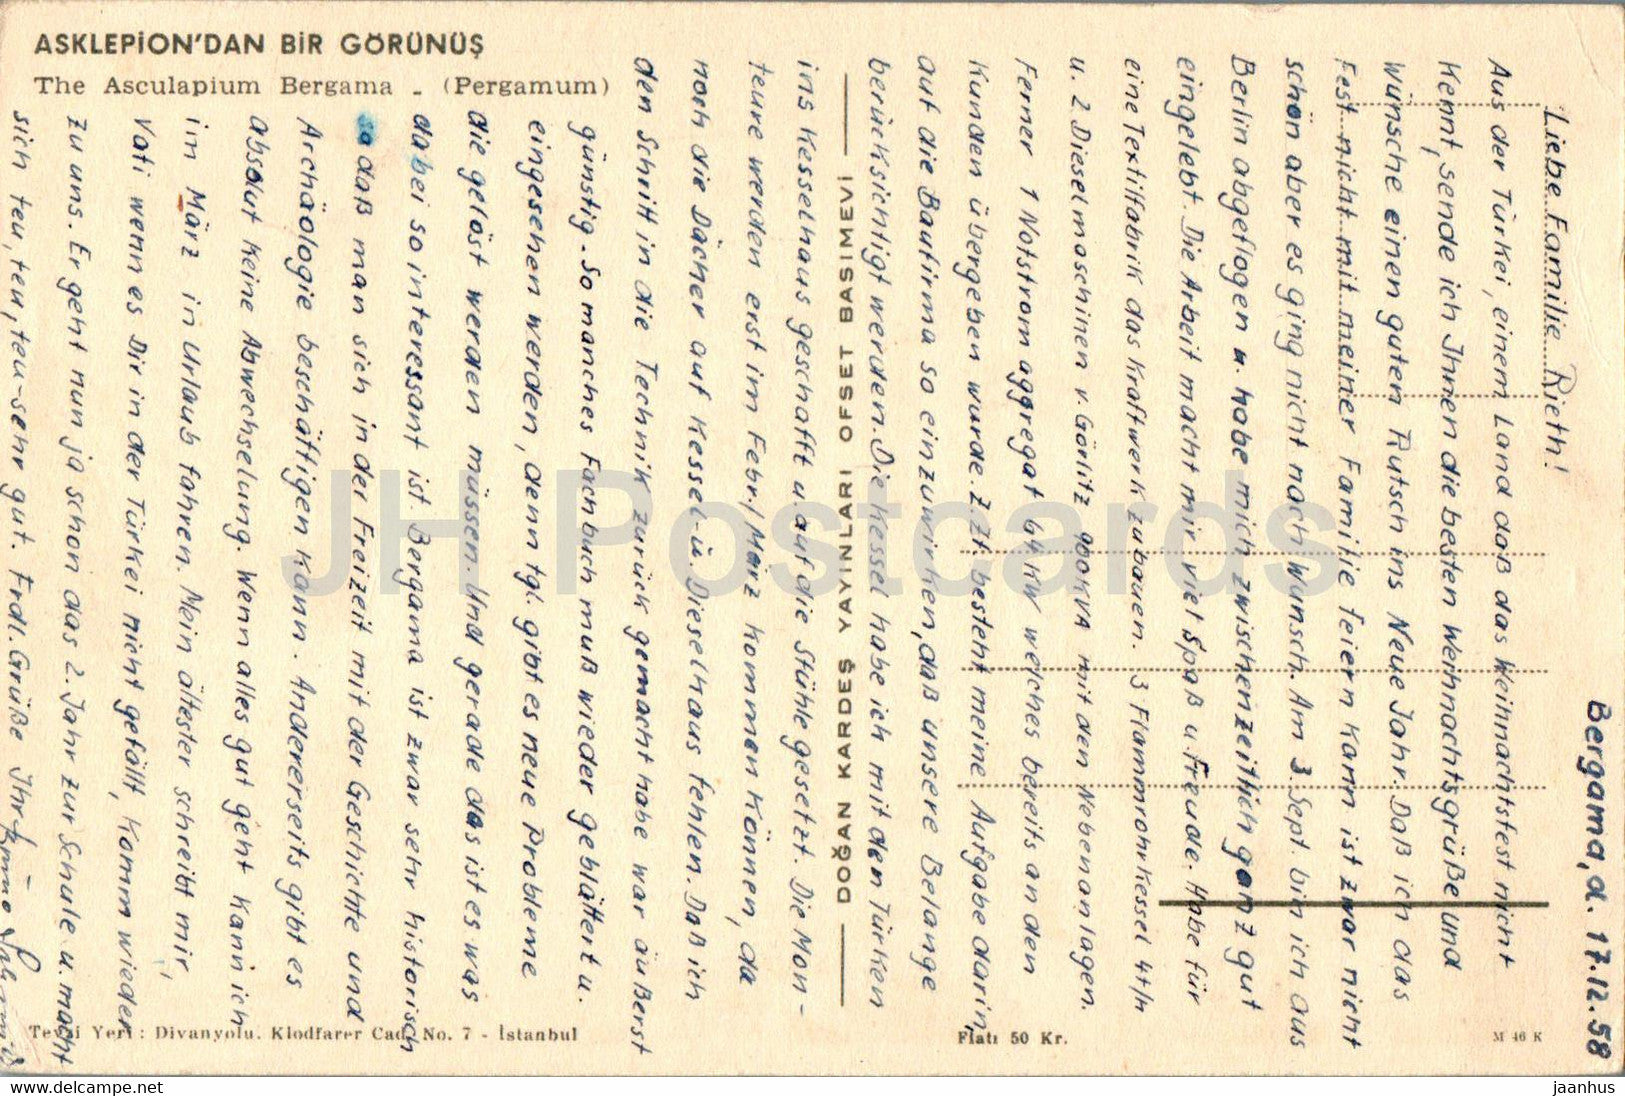 ASKLEPİON'DAN BİR GÖRÜNÜŞ
The Asculapium Bergama - (Pergamum)
Bergama, d. 17.12.58
Liebe Familie Rieth!
Aus der Türkei, einem Land daß das Weihnachtsfest nicht
Kennt, sende ich Ihnen die besten Weihnachtsgrüße und
wünsche einen guten Rutsch ins Neue Jahr. Daß ich das
Fest nicht mit meiner Familie feiern kann ist zwar nicht
schön aber es ging nicht nach wunsch. Am 3. Sept. bin ich aus
Berlin abgeflogen u. habe mich zwischenzeitlich ganz gut
eingelebt. Die Arbeit macht mir viel Spaß u. Freude. Habe für
eine Textilfabrik das Kraftwerk zu bauen. 3 Flammrohrkessel 4t/h
u. 2 Dieselmaschinen v. Görlitz 900KVA mit den Nebenanlagen.
Ferner 1 Notstromaggregat 64 KW welches bereits an den
Kunden übergeben wurde. Z.Zt. besteht meine Aufgabe darin,
auf die Baufirma so einzuwirken, daß unsere Belange
berücksichtigt werden. Die Kessel habe ich mit den Türken
ins Kesselhaus geschafft u. auf die Stühle gesetzt. Die Mon-
teure werden erst im Febr/März kommen können, da
noch die Dächer auf Kessel- u. Dieselhaus fehlen. Daß ich
den Schritt in die Technik zurück gemacht habe war äußerst
günstig. So manches Fachbuch muß wieder geblättert u.
eingesehen werden, denn tgl. gibt es neue Probleme
die gelöst werden müssen. Und gerade das ist es was
dabei so interessant ist. Bergama ist zwar sehr historisch
so daß man sich in der Freizeit mit der Geschichte und
Archäologie beschäftigen kann. Andererseits gibt es
absolut keine Abwechselung. Wenn alles gut geht kann ich
im März in Urlaub fahren. Mein ältester schreibt mir,
Vati wenn es Dir in der Türkei nicht gefällt, komm wieder
zu uns. Er geht nun ja schon das 2. Jahr zur Schule u. macht
sich teu, teu, teu - sehr gut. Frdl. Grüße Ihr
DOĞAN KARDEŞ YAYINLARI OFSET BASIMEVİ
Tevzi Yeri : Divanyolu. Klodfarer Cad. No. 7 - İstanbul
Fiatı 50 Kr.
M 46 K
JH Postcards
© www.delcampe.net
jaanhus